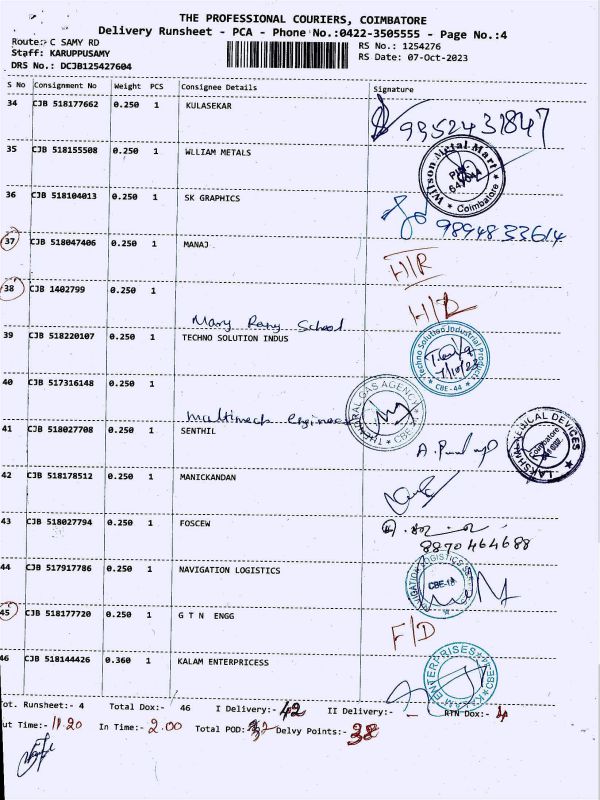 THE PROFESSIONAL COURIERS, COIMBATORE
Delivery Runsheet - PCA - Phone No.:0422-3505555 - Page No.:4
Route:- C SAMY RD
RS No.: 1254276
Staff: KARUPPUSAMY
RS Date: 07-Oct-2023
DRS No.: DCJB125427604
S No Consignment No Weight PCS Consignee Details Signature
34 CJB 518177662 0.250 1 KULASEKAR
9952431847
35 CJB 518155508 0.250 1 WLLIAM METALS
Wilson Metal Mart
Coimbatore
36 CJB 518104013 0.250 1 SK GRAPHICS
9894833614
37 CJB 518047406 0.250 1 MANAJ
H/R
38 CJB 1402799 0.250 1
Mary Rany School
39 CJB 518220107 0.250 1 TECHNO SOLUTION INDUS
Techno Solution Industrial Products
7/10/23
CBE-44
40 CJB 517316148 0.250 1
Multimech Engineer
GAS AGENCY
CBE
41 CJB 518027708 0.250 1 SENTHIL
LAKSHMI MEDICAL DEVICES
Coimbatore
42 CJB 518178512 0.250 1 MANICKANDAN
43 CJB 518027794 0.250 1 FOSCEW
8870464688
44 CJB 517917786 0.250 1 NAVIGATION LOGISTICS
NAVIGATION LOGISTICS
45 CJB 518177720 0.250 1 G T N ENGG
F/D
46 CJB 518144426 0.360 1 KALAM ENTERPRICESS
KALAM ENTERPRISES
CBE-44
Tot. Runsheet:- 4 Total Dox:- 46 I Delivery:- 42 II Delivery:- - RTN Dox:- 4
Out Time:- 11.20 In Time:- 2.00 Total POD: Delvy Points:- 38